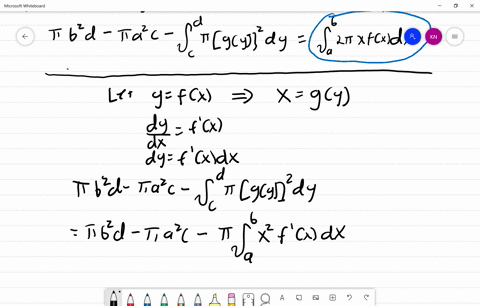 Microsoft Whiteboard
πb²d - πa²c - ∫_c^d π[g(y)]² dy = ∫_a^b 2πx f(x) d
KN
Let y = f(x) ⇒ x = g(y)
dy/dx = f'(x)
dy = f'(x)dx
πb²d - πa²c - ∫_c^d π[g(y)]² dy
= πb²d - πa²c - π∫_a^b x² f'(x) dx